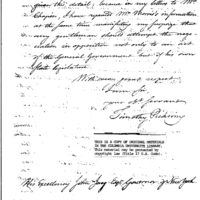 given this detail; because in my letter to Mr
I have reported Mr. Morris's information
at the same time manifesting my surprise that
any gentleman should attempt the nego-
ciation in opposition not only to an act
of the General Government but of his own
State Legislature.
With very great respect
I am Sir
your Obt Servant
Timothy Pickering
THIS IS A COPY OF ORIGINAL MATERIALS
IN THE COLUMBIA UNIVERSITY LIBRARY.
This material may be protected by
copyright law (Title 17 U.S. Code).
His Excellency John Jay Esq. Governor of New York